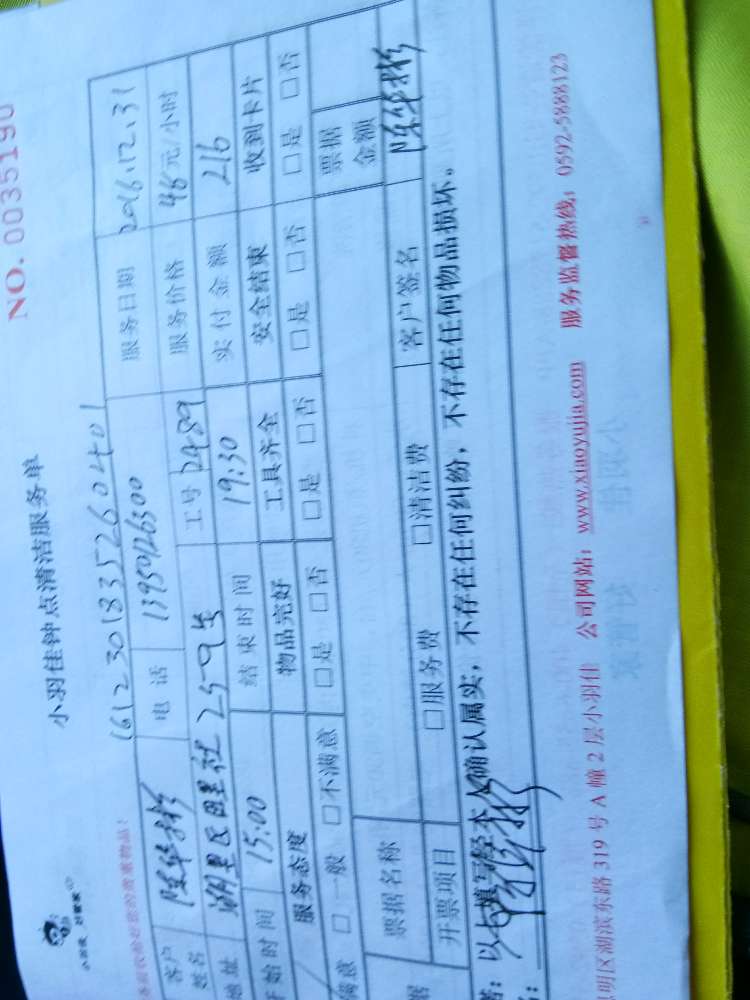 NO. 0035190
小羽佳 好管家
小羽佳钟点清洁服务单
161230183526040401
客户姓名 陈华彬 电话 13950126300 服务日期 2016.12.31
工号 2489 服务价格 48元/小时
地址 湖里区 里社259号 实付金额 216
开始时间 15:00 结束时间 19:30
服务态度 物品完好 工具齐全 安全结束 收到卡片
满意 □一般 □不满意 □是 □否 □是 □否 □是 □否 □是 □否
票据名称 票据金额
开票项目 □服务费 □清洁费 客户签名 陈华彬
以上填写经本人确认属实,不存在任何纠纷,不存在任何物品损坏。
陈华彬
明区湖滨东路 319 号 A 幢 2 层小羽佳 公司网站:www.xiaoyujia.com 服务监督热线:0592-5888123